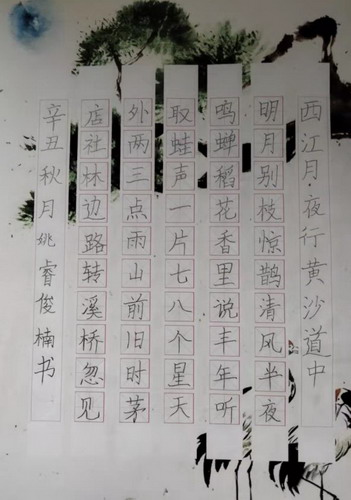 西江月·夜行黄沙道中
明月别枝惊鹊清风半夜
鸣蝉稻花香里说丰年听
取蛙声一片七八个星天
外两三点雨山前旧时茅
店社林边路转溪桥忽见
辛丑秋月姚睿俊楠书